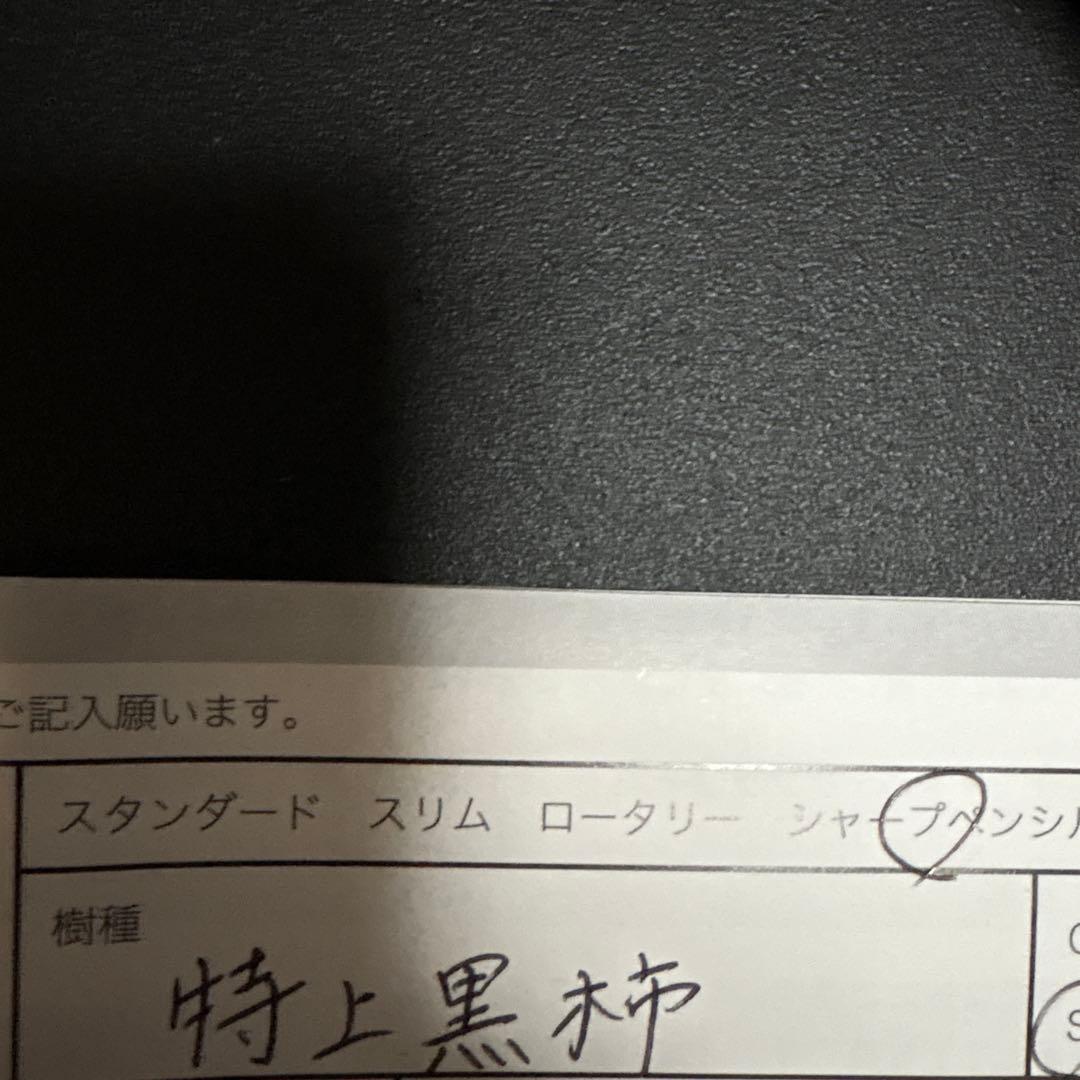 ご記入願います。
スタンダード スリム ロータリー シャープペンシル
樹種
特上黒柿
S